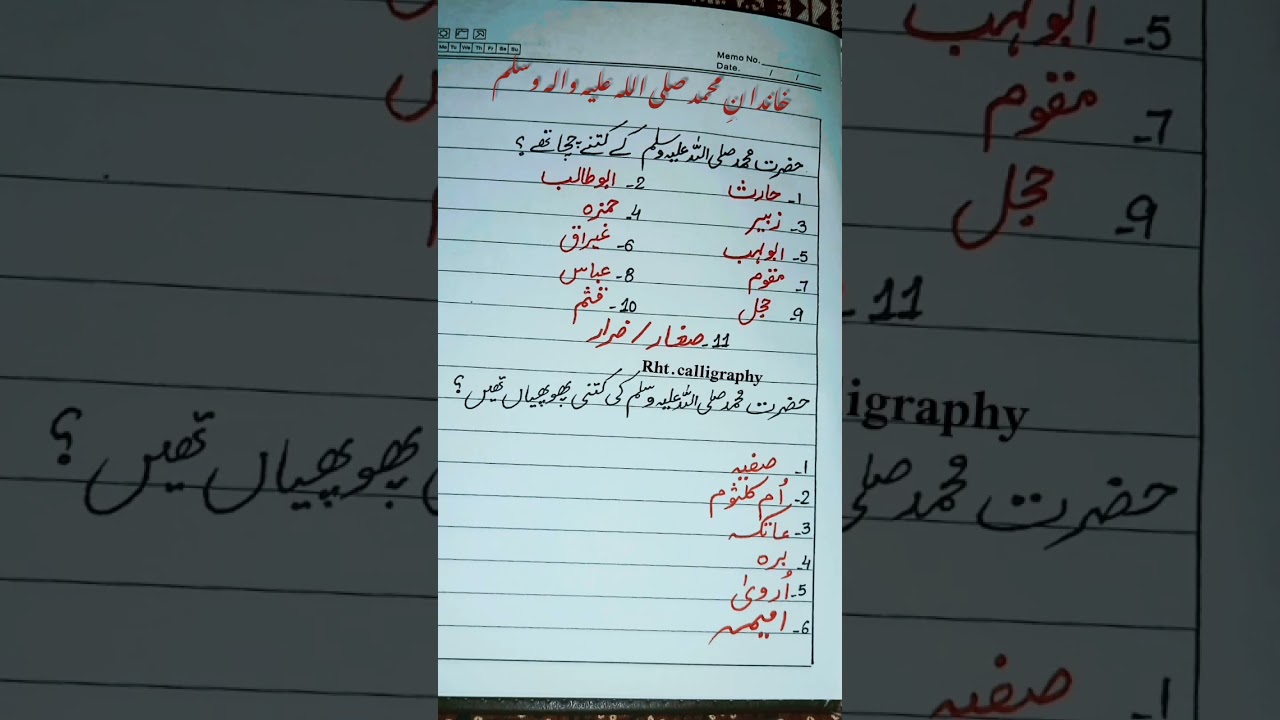 Mo Tu We Th Fr Sa Su
Memo No.
Date. / /
خاندانِ محمد صلی اللہ علیہ والہ وسلم
حضرت محمد صلی اللہ علیہ وسلم کے کتنے چچا تھے؟
1- حارث 2- ابوطالب
3- زبیر 4- حمزہ
5- ابولہب 6- غیراق
7- مقوم 8- عباس
9- حجل 10- قثم
11- صغار / ضرار
Rht.calligraphy
حضرت محمد صلی اللہ علیہ وسلم کی کتنی پھوپھیاں تھیں؟
1- صفیہ
2- اُم کلثوم
3- عاتکہ
4- برہ
5- اُرویٰ
6- امیمہ